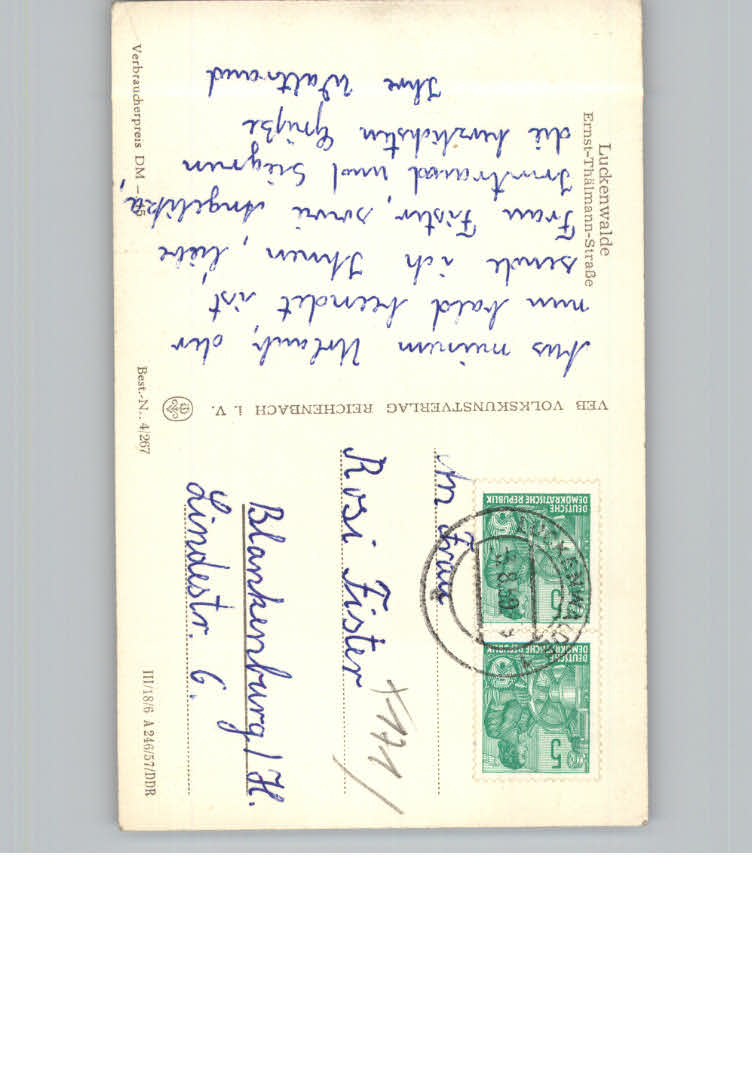 Luckenwalde
Ernst-Thälmann-Straße
Aus meinem Urlaub, der
nun bald beendet ist,
sende ich Ihnen, liebe
Frau Fister, sowie Angelika,
Irmtraud und Siegrun
die herzlichsten Grüße
Ihre Waltraud
Verbraucherpreis DM –,15
VEB VOLKSKUNSTVERLAG REICHENBACH i. V.
Best.-N.. 4/267
DEUTSCHE
DEMOKRATISCHE REPUBLIK
5
DEUTSCHE
DEMOKRATISCHE REPUBLIK
5
LUCKENWALDE
An Frau
Rosi Fister
Blankenburg / H.
Lindestr. 6.
III/18/6 A 246/57/DDR